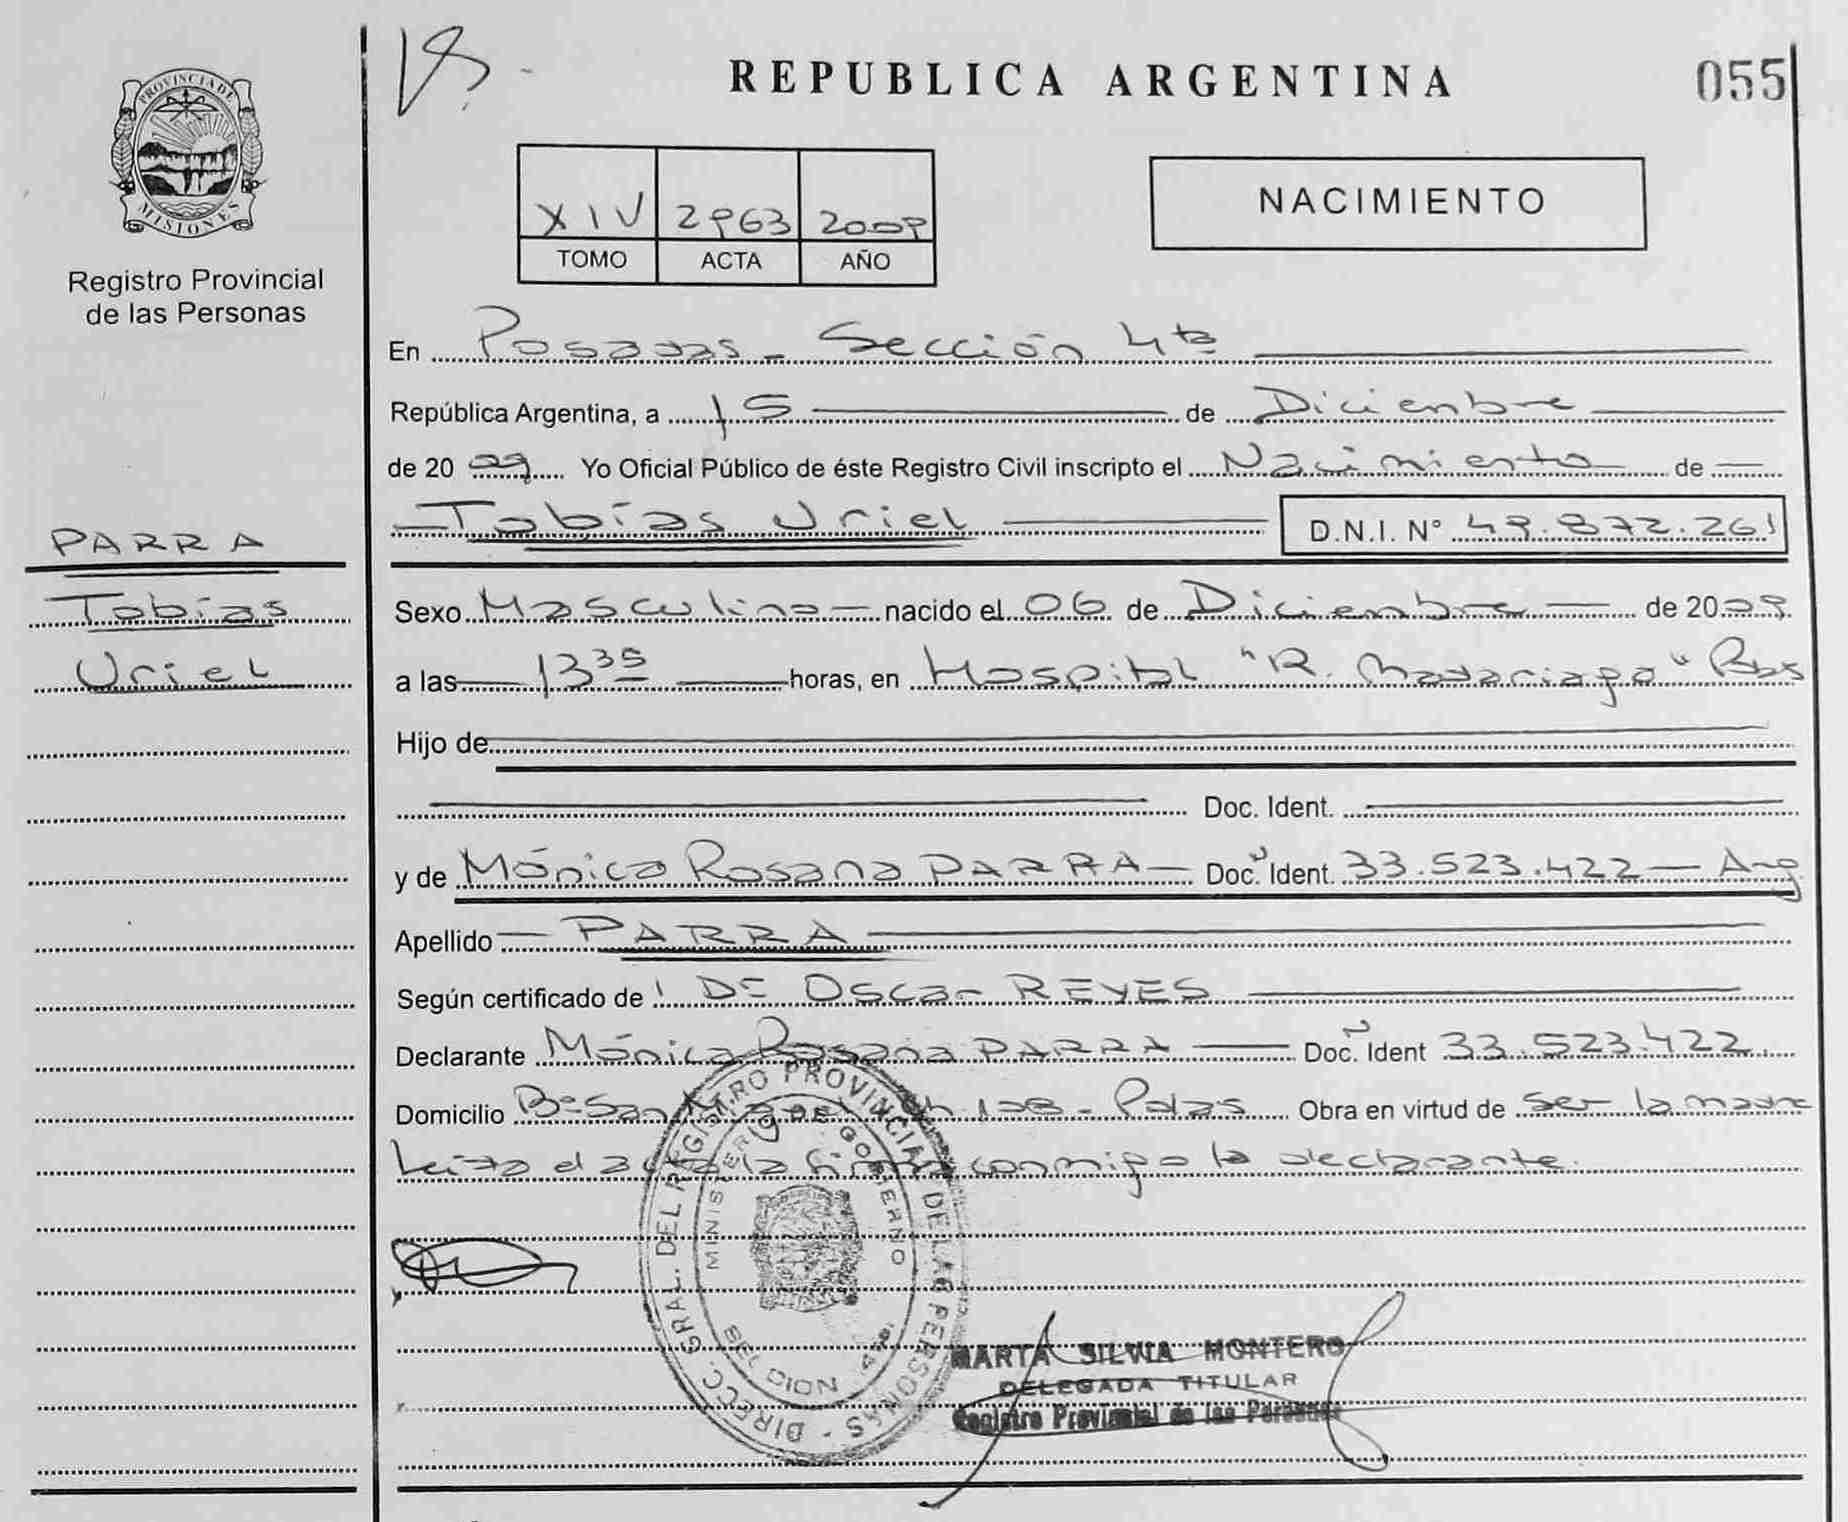 REPUBLICA ARGENTINA
055
PROVINCIA DE MISIONES
Registro Provincial
de las Personas
XIV 2963 2009
TOMO ACTA AÑO
NACIMIENTO
En Posadas - Sección 4ta
República Argentina, a 15 de Diciembre
de 2009 Yo Oficial Público de éste Registro Civil inscripto el Nacimiento de
Tobías Uriel D.N.I. N° 49.872.261
PARRA
Tobías
Uriel
Sexo Masculino nacido el 06 de Diciembre de 2009
a las 13 35 horas, en Hospital "R. Madariaga" Pdas
Hijo de
Doc. Ident.
y de Mónica Rosana PARRA Doc. Ident. 33.523.422 - Arg
Apellido PARRA
Según certificado de DE Oscar REYES
Declarante Mónica Rosana PARRA Doc. Ident 33.523.422.
Domicilio B° San Ch. 108 - Pdas Obra en virtud de ser la madre
Leída el acta la firma conmigo la declarante.
DIRECC. GRAL. DEL REGISTRO PROVINCIAL DE LAS PERSONAS -
MINISTERIO DE GOBIERNO
MARTA SILVIA MONTERO
DELEGADA TITULAR
Registro Provincial de las Personas